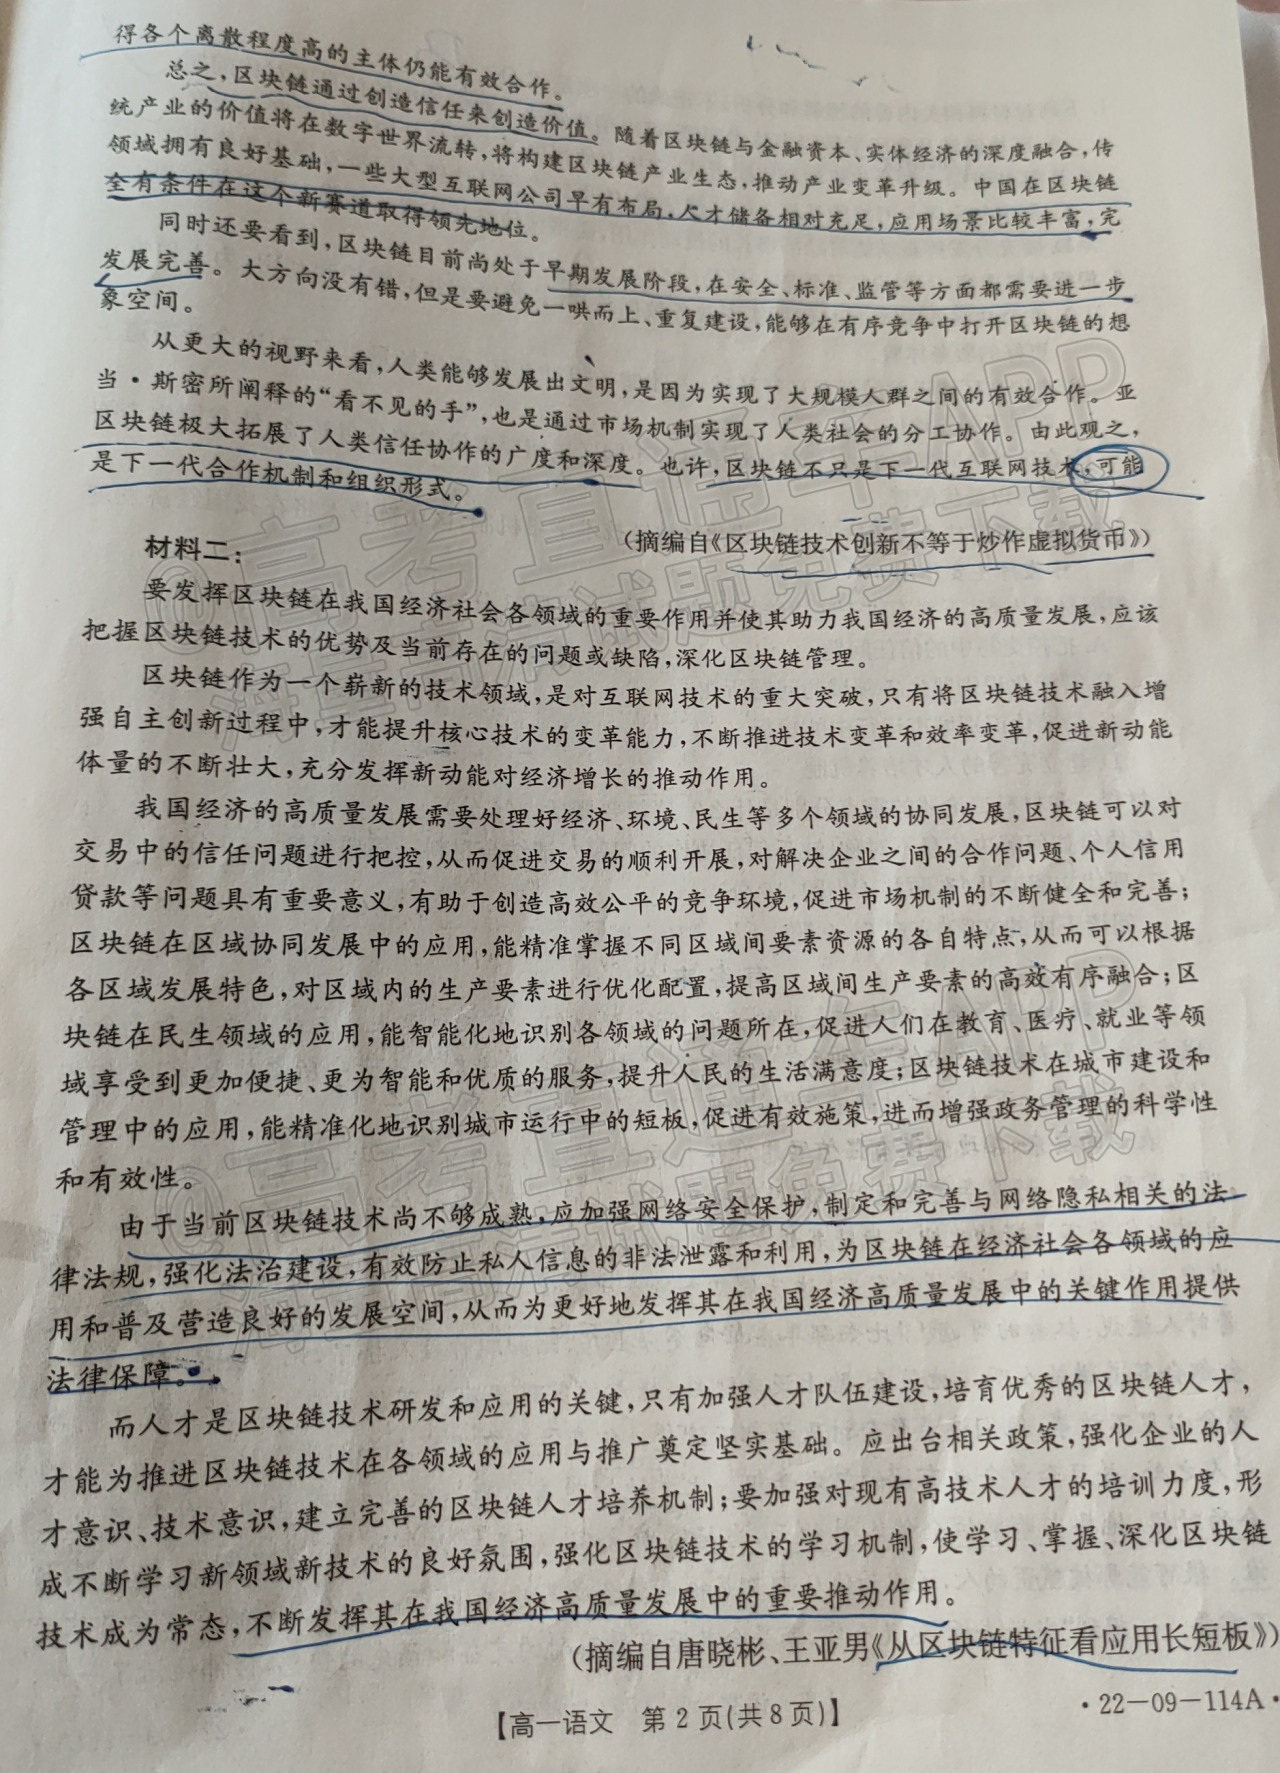 得各个离散程度高的主体仍能有效合作。
总之,区块链通过创造信任来创造价值。随着区块链与金融资本、实体经济的深度融合,传
统产业的价值将在数字世界流转,将构建区块链产业生态,推动产业变革升级。中国在区块链
领域拥有良好基础,一些大型互联网公司早有布局,人才储备相对充足,应用场景比较丰富,完
全有条件在这个新赛道取得领先地位。
同时还要看到,区块链目前尚处于早期发展阶段,在安全、标准、监管等方面都需要进一步
发展完善。大方向没有错,但是要避免一哄而上、重复建设,能够在有序竞争中打开区块链的想
象空间。
从更大的视野来看,人类能够发展出文明,是因为实现了大规模人群之间的有效合作。亚
当·斯密所阐释的“看不见的手”,也是通过市场机制实现了人类社会的分工协作。由此观之,
区块链极大拓展了人类信任协作的广度和深度。也许,区块链不只是下一代互联网技术,可能
是下一代合作机制和组织形式。
(摘编自《区块链技术创新不等于炒作虚拟货币》)
材料二:
要发挥区块链在我国经济社会各领域的重要作用并使其助力我国经济的高质量发展,应该
把握区块链技术的优势及当前存在的问题或缺陷,深化区块链管理。
区块链作为一个崭新的技术领域,是对互联网技术的重大突破,只有将区块链技术融入增
强自主创新过程中,才能提升核心技术的变革能力,不断推进技术变革和效率变革,促进新动能
体量的不断壮大,充分发挥新动能对经济增长的推动作用。
我国经济的高质量发展需要处理好经济、环境、民生等多个领域的协同发展,区块链可以对
交易中的信任问题进行把控,从而促进交易的顺利开展,对解决企业之间的合作问题、个人信用
贷款等问题具有重要意义,有助于创造高效公平的竞争环境,促进市场机制的不断健全和完善;
区块链在区域协同发展中的应用,能精准掌握不同区域间要素资源的各自特点,从而可以根据
各区域发展特色,对区域内的生产要素进行优化配置,提高区域间生产要素的高效有序融合;区
块链在民生领域的应用,能智能化地识别各领域的问题所在,促进人们在教育、医疗、就业等领
域享受到更加便捷、更为智能和优质的服务,提升人民的生活满意度;区块链技术在城市建设和
管理中的应用,能精准化地识别城市运行中的短板,促进有效施策,进而增强政务管理的科学性
和有效性。
由于当前区块链技术尚不够成熟,应加强网络安全保护,制定和完善与网络隐私相关的法
律法规,强化法治建设,有效防止私人信息的非法泄露和利用,为区块链在经济社会各领域的应
用和普及营造良好的发展空间,从而为更好地发挥其在我国经济高质量发展中的关键作用提供
法律保障。
而人才是区块链技术研发和应用的关键,只有加强人才队伍建设,培育优秀的区块链人才,
才能为推进区块链技术在各领域的应用与推广奠定坚实基础。应出台相关政策,强化企业的人
才意识、技术意识,建立完善的区块链人才培养机制;要加强对现有高技术人才的培训力度,形
成不断学习新领域新技术的良好氛围,强化区块链技术的学习机制,使学习、掌握、深化区块链
技术成为常态,不断发挥其在我国经济高质量发展中的重要推动作用。
(摘编自唐晓彬、王亚男《从区块链特征看应用长短板》)
【高一语文 第2页(共8页)】
·22-09-114A·